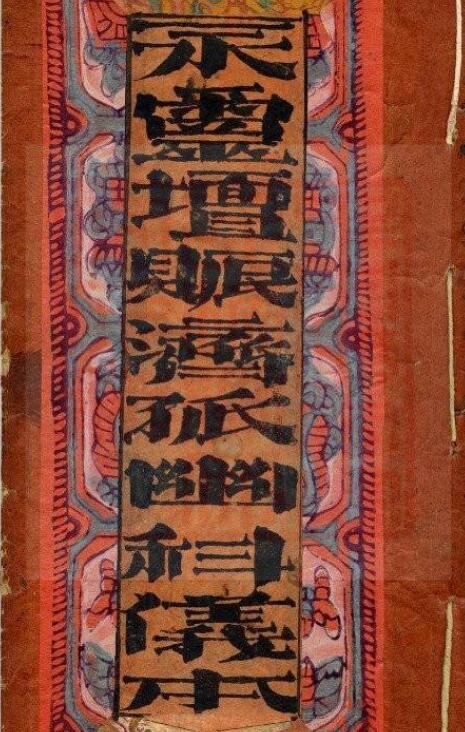 靈壇賑濟孤幽科儀本